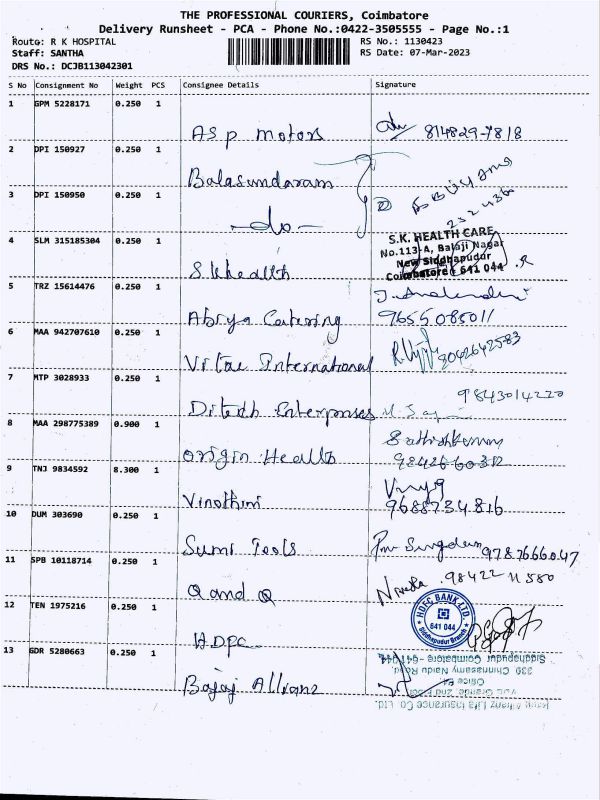 THE PROFESSIONAL COURIERS, Coimbatore
Delivery Runsheet - PCA - Phone No.:0422-3505555 - Page No.:1
Route: R K HOSPITAL
RS No.: 1130423
Staff: SANTHA
RS Date: 07-Mar-2023
DRS No.: DCJB113042301
S No Consignment No Weight PCS Consignee Details Signature
1 GPM 5228171 0.250 1
ASP Motors 814829-7818
2 DPI 150927 0.250 1
Balasundaram
3 DPI 150950 0.250 1
-do-
4 SLM 315185304 0.250 1
S.K. HEALTH CARE
No.113-A, Balaji Nagar
New Siddhapudur
Coimbatore - 641 044
SKhealth
5 TRZ 15614476 0.250 1
Abiya Catering 9655085011
6 MAA 942707610 0.250 1
Vitae International 3042642583
7 MTP 3028933 0.250 1
9843014220
Ditech Enterprises
8 MAA 298775389 0.900 1
Sathishkumar
Origin Health 9842660312
9 TNJ 9834592 8.300 1
Vinothini 9688734816
10 DUM 303690 0.250 1
Sumi Tools 9787666047
11 SPB 10118714 0.250 1
98422 11580
Q and Q
12 TEN 1975216 0.250 1
HDFC BANK LTD.
641 044
Siddhapudur Branch
HDFC
13 GDR 5280663 0.250 1
Siddhapudur Coimbatore - 641 044
339 Chinnasamy Naidu Road,
Bajaj Allianz
Bajaj Allianz Life Insurance Co Ltd.